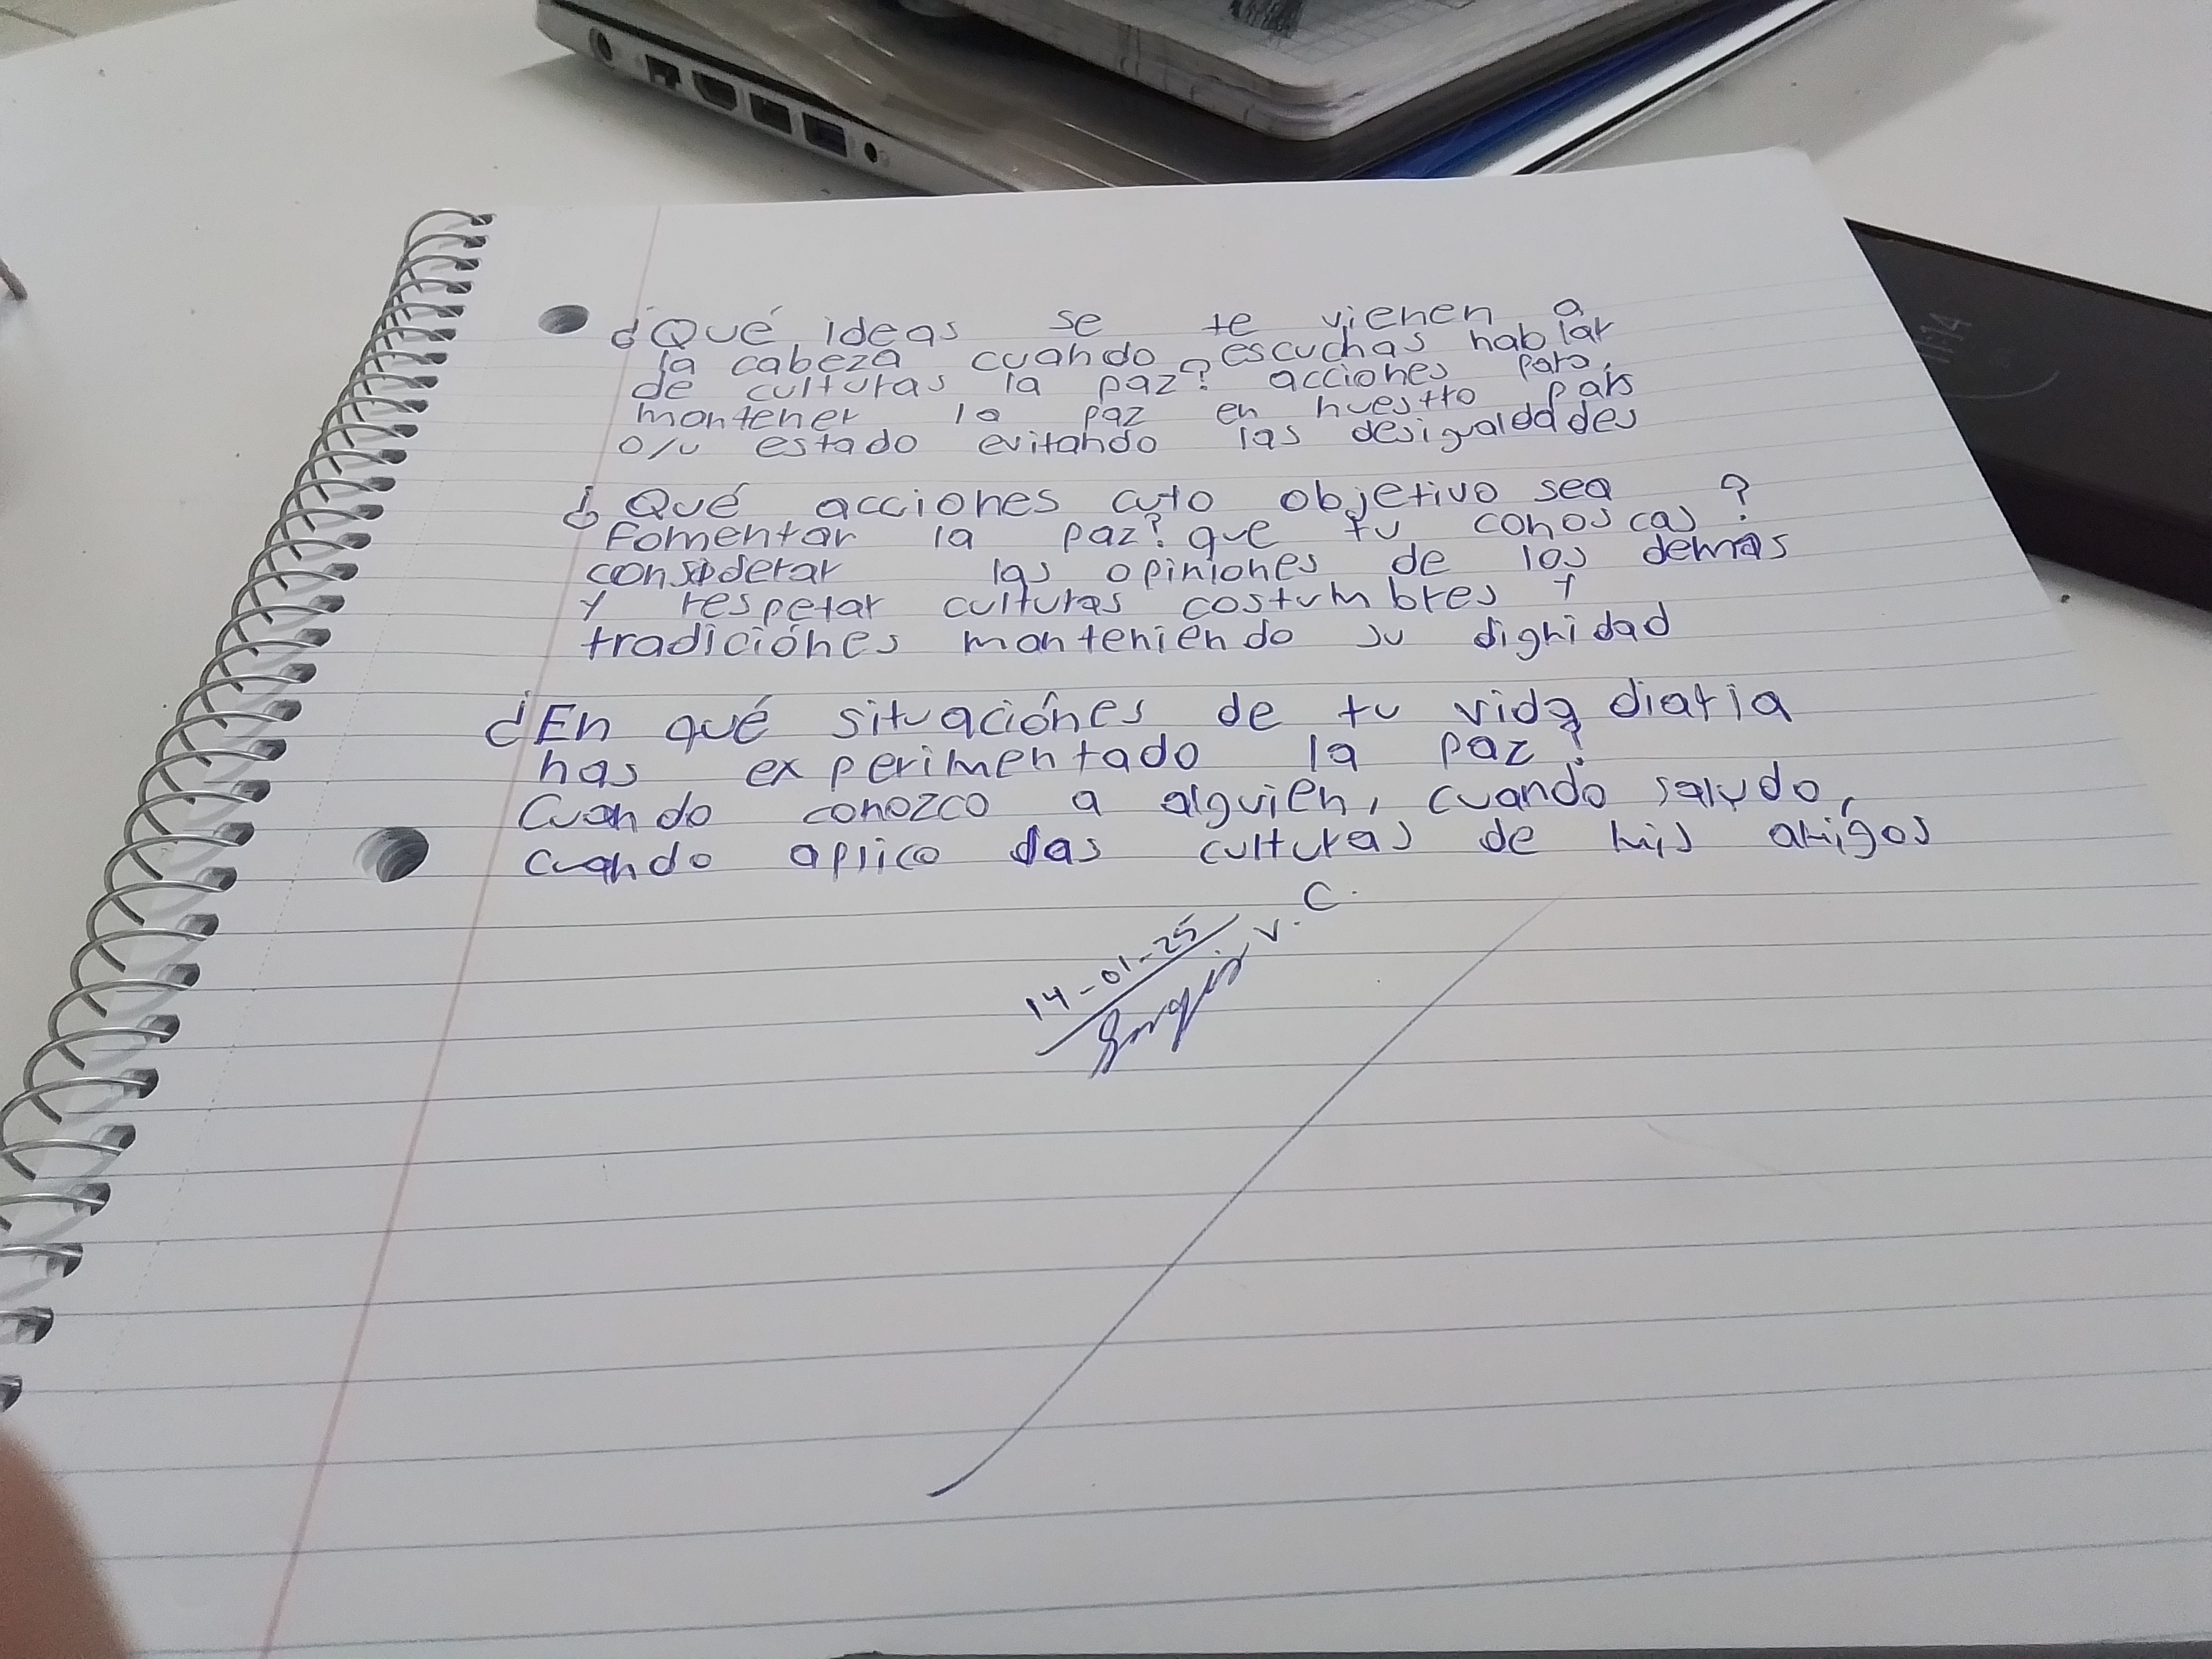 ¿Qué ideas se te vienen a
la cabeza cuando escuchas hablar
de culturas la paz? acciones para
mantener la paz en nuestro país
o/u estado evitando las desigualdades
¿Qué acciones cuto objetivo sea
fomentar la paz? que tu conoscas?
considerar las opiniones de los demás
y respetar culturas costumbres y
tradiciónes manteniendo su dignidad
¿En qué situaciónes de tu vida diaria
has experimentado la paz?
Cuando conozco a alguien, cuando saludo,
cuando aplico las culturas de mis amigos
14-01-25
V. C.
11:14